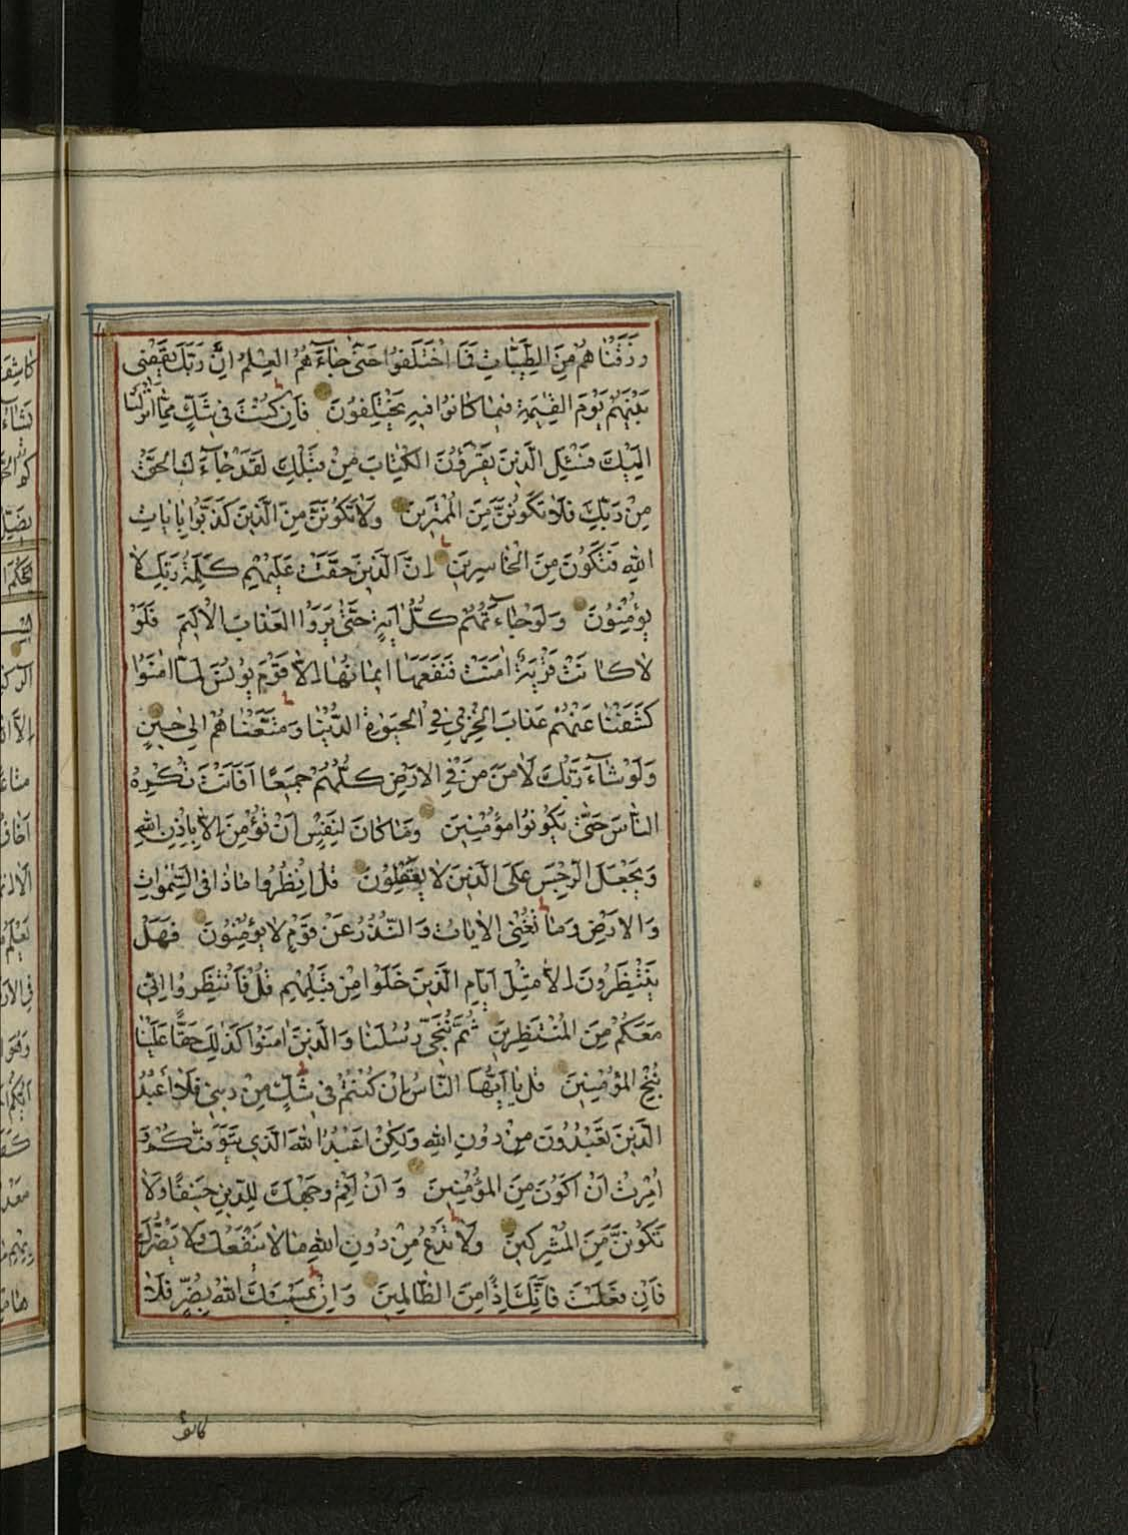 ورَزَقْنَاهُمْ مِنَ الطَّيِّبَاتِ فَمَا اخْتَلَفُوا حَتّٰى جَاءَهُمُ الْعِلْمُ اِنَّ رَبَّكَ يَقْضٖى
بَيْنَهُمْ يَوْمَ الْقِيٰمَةِ فٖيمَا كَانُوا فٖيهِ يَخْتَلِفُونَ فَاِنْ كُنْتَ فٖى شَكٍّ مِمَّا اَنْزَلْنَا
اِلَيْكَ فَسْئَلِ الَّذٖينَ يَقْرَؤُنَ الْكِتَابَ مِنْ قَبْلِكَ لَقَدْ جَاءَكَ الْحَقُّ
مِنْ رَبِّكَ فَلَا تَكُونَنَّ مِنَ الْمُمْتَرٖينَ وَلَا تَكُونَنَّ مِنَ الَّذٖينَ كَذَّبُوا بِاٰيَاتِ
اللّٰهِ فَتَكُونَ مِنَ الْخَاسِرٖينَ اِنَّ الَّذٖينَ حَقَّتْ عَلَيْهِمْ كَلِمَةُ رَبِّكَ لَا
يُؤْمِنُونَ وَلَوْ جَاءَتْهُمْ كُلُّ اٰيَةٍ حَتّٰى يَرَوُا الْعَذَابَ الْاَلٖيمَ فَلَوْ
لَا كَانَتْ قَرْيَةٌ اٰمَنَتْ فَنَفَعَهَا اٖيمَانُهَا اِلَّا قَوْمَ يُونُسَ لَمَّا اٰمَنُوا
كَشَفْنَا عَنْهُمْ عَذَابَ الْخِزْىِ فِى الْحَيٰوةِ الدُّنْيَا وَمَتَّعْنَاهُمْ اِلٰى حٖينٍ
وَلَوْ شَاءَ رَبُّكَ لَاٰمَنَ مَنْ فِى الْاَرْضِ كُلُّهُمْ جَمٖيعًا اَفَاَنْتَ تُكْرِهُ
النَّاسَ حَتّٰى يَكُونُوا مُؤْمِنٖينَ وَمَا كَانَ لِنَفْسٍ اَنْ تُؤْمِنَ اِلَّا بِاِذْنِ اللّٰهِ
وَيَجْعَلُ الرِّجْسَ عَلَى الَّذٖينَ لَا يَعْقِلُونَ قُلِ انْظُرُوا مَاذَا فِى السَّمٰوَاتِ
وَالْاَرْضِ وَمَا تُغْنِى الْاٰيَاتُ وَالنُّذُرُ عَنْ قَوْمٍ لَا يُؤْمِنُونَ فَهَلْ
يَنْتَظِرُونَ اِلَّا مِثْلَ اَيَّامِ الَّذٖينَ خَلَوْا مِنْ قَبْلِهِمْ قُلْ فَانْتَظِرُوا اِنّٖى
مَعَكُمْ مِنَ الْمُنْتَظِرٖينَ ثُمَّ نُنَجّٖى رُسُلَنَا وَالَّذٖينَ اٰمَنُوا كَذٰلِكَ حَقًّا عَلَيْنَا
نُنْجِ الْمُؤْمِنٖينَ قُلْ يَا اَيُّهَا النَّاسُ اِنْ كُنْتُمْ فٖى شَكٍّ مِنْ دٖينٖى فَلَا اَعْبُدُ
الَّذٖينَ تَعْبُدُونَ مِنْ دُونِ اللّٰهِ وَلٰكِنْ اَعْبُدُ اللّٰهَ الَّذٖى يَتَوَفّٰيكُمْ وَ
اُمِرْتُ اَنْ اَكُونَ مِنَ الْمُؤْمِنٖينَ وَاَنْ اَقِمْ وَجْهَكَ لِلدّٖينِ حَنٖيفًا وَلَا
تَكُونَنَّ مِنَ الْمُشْرِكٖينَ وَلَا تَدْعُ مِنْ دُونِ اللّٰهِ مَا لَا يَنْفَعُكَ وَلَا يَضُرُّكَ
فَاِنْ فَعَلْتَ فَاِنَّكَ اِذًا مِنَ الظَّالِمٖينَ وَاِنْ يَمْسَسْكَ اللّٰهُ بِضُرٍّ فَلَا